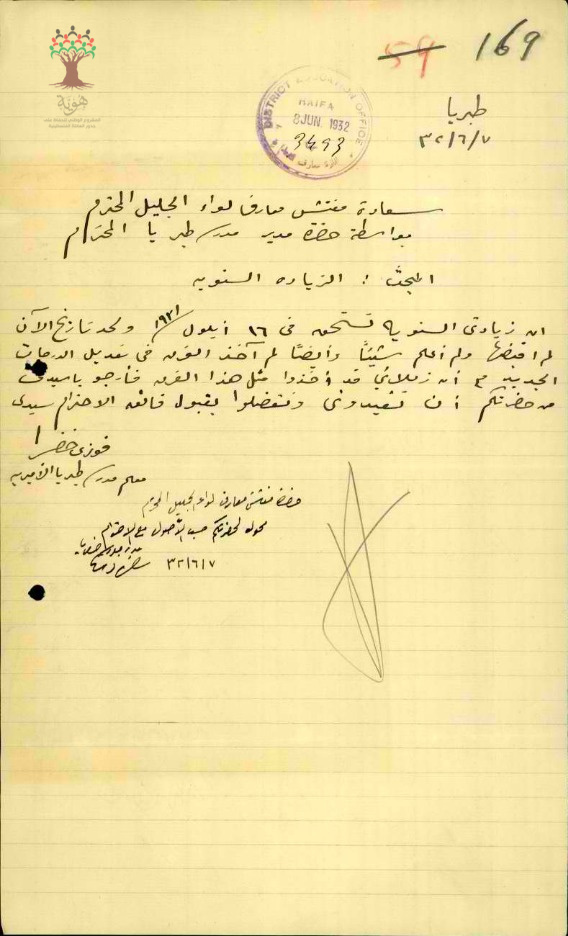 هوية
59 169
DISTRICT EDUCATION OFFICE
HAIFA
8 JUN 1932
3493
طبريا
٣٢/٦/٧
سعادة مفتش معارف لواء الجليل المحترم
بواسطة حضرة مدير مدرسة طبريا المحترم
المبحث : الزيادة السنوية
ان زيادتي السنوية تستحق في ١٦ أيلول ١٩٣١ ولحد تاريخ الآن
لم اقبضها ولم أعلم شيئاً وأيضاً لم آخذ الفرق في تعديل الدرجات
الجديد مع أن زملائي قد أخذوا مثل هذا الفرق فأرجو يا سيدي
من حضرتكم أن تفيدوني وتفضلوا بقبول فائق الاحترام سيدي
فوزي خضرا
معلم مدرسة طبريا الأميرية
حضرة مفتش معارف لواء الجليل المحترم
محولة لحضرتكم حسب الأصول مع الاحترام
٣٢/٦/٧